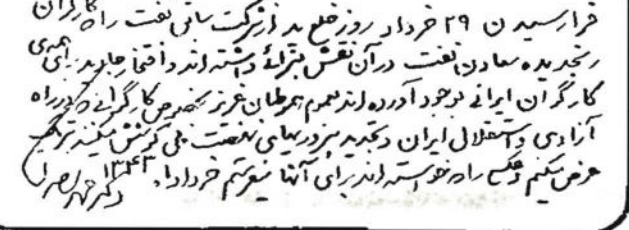 فرا رسیدن ۲۹ خرداد روز خلع ید از شرکت سابق نفت را که کارگران
رنجدیده معادن نفت در آن نقش بسزائی داشته اند و افتخار جاوید برای همه‌ی
کارگران ایرانی بوجود آورده اند بعموم هموطنان عزیز بخصوص کارگرانی که در راه
آزادی و استقلال ایران و تجدید پیروزیهای نهضت ملی کوشش میکنند تبریک
عرض میکنم و عکسی را که خواسته اند برای آنها میفرستم خرداد ۱۳۴۳
دکتر محمد مصدق